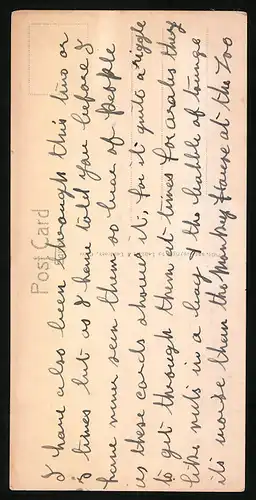 Post Card
I have also been through this two or
3 times but as I have told you before I
have never seen them so line of people
as these cards shows it, for it quite a riggle
to get through them at times for orates they
like nuts in a bag & the babble of tounge
its worse than the Monkey House at the Zoo